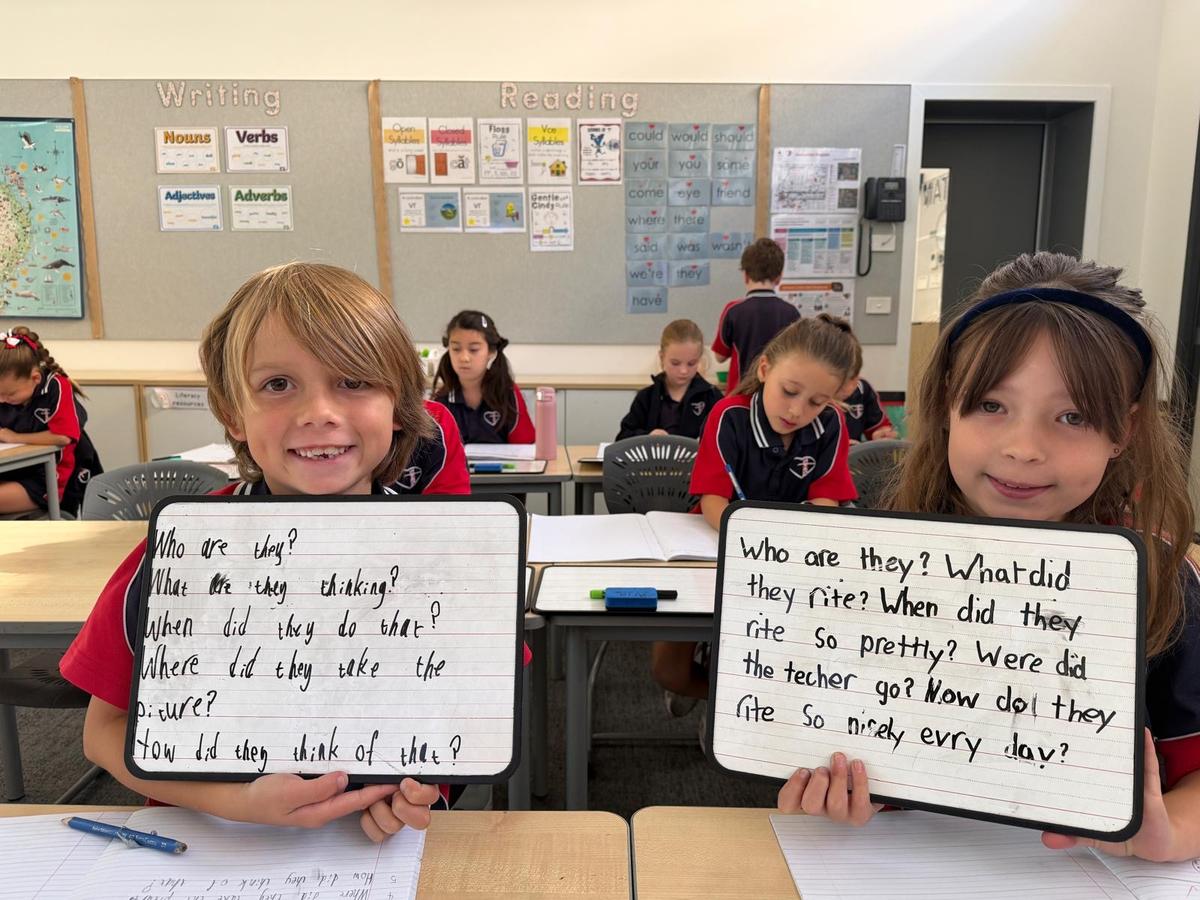 Writing
Reading
Nouns
Verbs
Adjectives
Adverbs
Open Syllables
Closed Syllables
Floss Rule
Vce Syllables
Gentle Cindy Rule
could would should
your you some
come eye friend
where there
said was wasn't
we're they
have
Literacy resources
Who are they?
What are they thinking?
When did they do that?
Where did they take the
picture?
How did they think of that?
Who are they? What did
they rite? When did they
rite so prettly? Were did
the techer go? How do they
rite so nicely evry day?
How did they think of that?